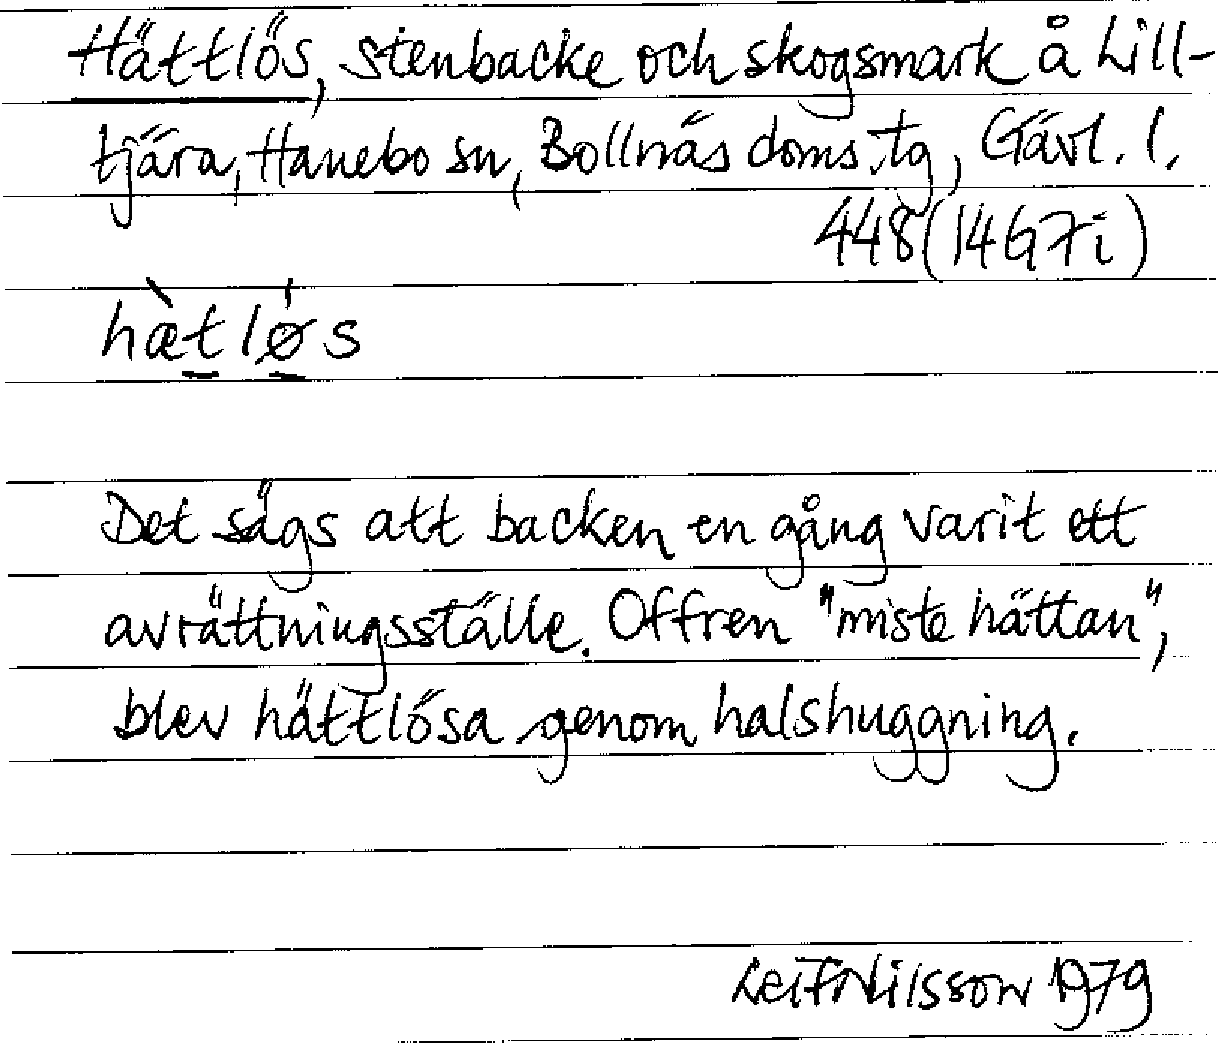 Hättlös, stenbacke och skogsmark å Lill-
tjära, Hanebo sn, Bollnäs doms.tg, Gävl. l.
448 (14G7i)
hæ̀tlǿs
Det sägs att backen en gång varit ett
avrättningsställe. Offren "miste hättan",
blev hättlösa genom halshuggning.
Leif Nilsson 1979